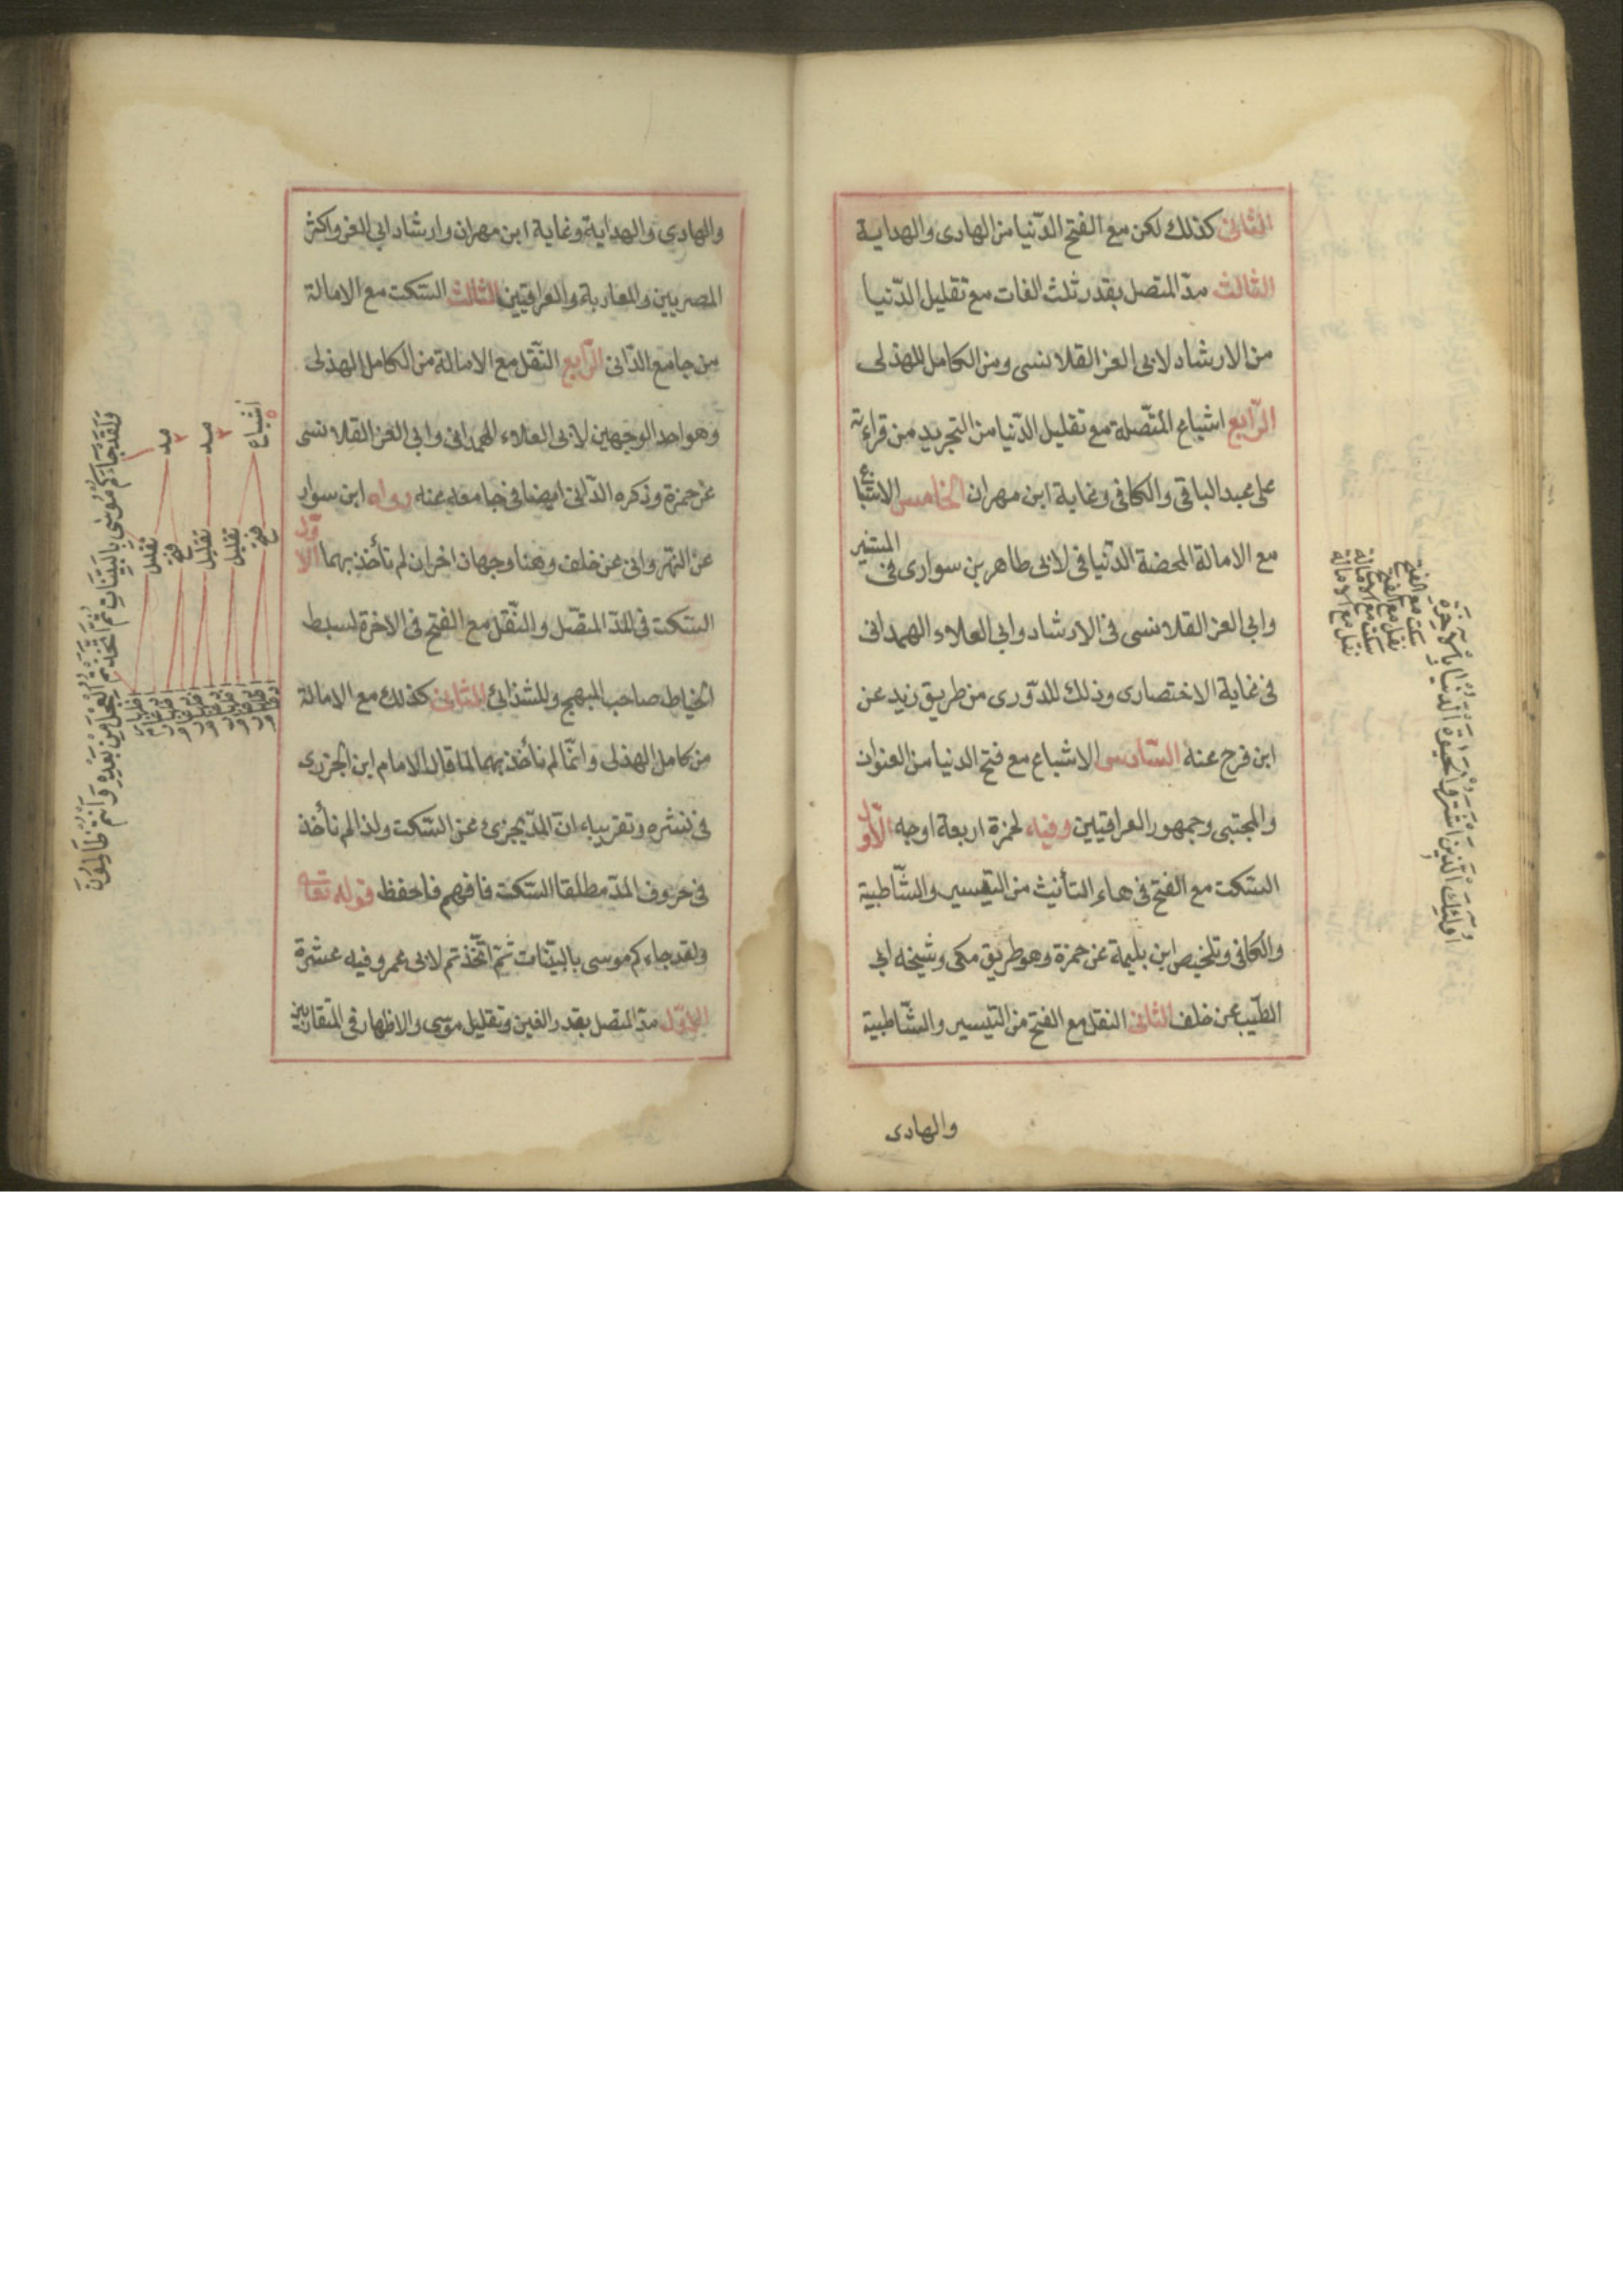 الثانى كذلك لكن مع الفتح الدّنيا من الهادى والهداية
الثالث مدّ المتصل بقدر ثلث الفات مع تقليل الدّنيا
من الارشاد لابى العز القلانسى ومن الكامل للهذلى
الرّابع اشباع المتّصلة مع تقليل الدّنيا من التجريد من قراءته
على عبد الباقى والكافى وغاية ابن مهران الخامس الاشباع
مع الامالة المحضة الدّنيا فى لابى طاهر بن سوار فى المستنير
وابى العز القلانسى فى الارشاد وابى العلاء الهمدانى
فى غاية الاختصارى وذلك للدّورى من طريق زيد عن
ابن فرح عنه السّادس الاشباع مع فتح الدنيا من العنوان
والمجتبى وجمهور العراقيين وفيه لحمزة اربعة اوجه الاوّل
السّكت مع الفتح فى هاء التأنيث من التيسير والشّاطبية
والكافى وتلخيص ابن بليمة عن حمزة وهو طريق مكى وشيخه ابى
الطّيب عن خلف الثانى النقل مع الفتح من التيسير والشّاطبية
والهادى
اولئك الّذين اشتروا الحيوة الدّنيا بالآخرة
سكت مع الفتح
نقل مع الفتح
سكت مع الامالة
نقل مع الامالة
والهادى والهداية وغاية ابن مهران وارشاد ابى العز واكثر
المصريين والمغاربة والعراقيين الثالث السّكت مع الامالة
من جامع الدّانى الرّابع النّقل مع الامالة من الكامل للهذلى
وهو احد الوجهين لابى العلاء الهمدانى وابى العز القلانسى
عن حمزة وذكره الدّانى ايضا فى جامعه عنه رواه ابن سوار
عن النّهروانى عن خلف وهنا وجهان اخران لم نأخذ بهما الاوّل
السّكت فى المدّ المتّصل والنّقل مع الفتح فى الاخرة لسبط
الخياط صاحب المبهج وللشذائى الثانى كذلك مع الامالة
من كامل الهذلى وانّما لم نأخذ بهما لما قال الامام ابن الجزرى
فى نشره وتقريبه انّ المدّ يجزئ عن السّكت ولذا لم نأخذ
فى حروف المدّ مطلقا السّكت فافهم فاحفظ قوله تعالى
ولقد جاءكم موسى بالبيّنات ثمّ اتّخذتم لابى عمرو فيه عشرة
الاوّل مدّ المتصل بقدر الفين وتقليل موسى والاظهار فى المتقاربين
ولقد جاءكم موسى بالبيّنات ثمّ اتّخذتم العجل من بعده وانتم ظالمون
مد
مد
اشباع
تقليل
فتح
تقليل
تقليل
فتح